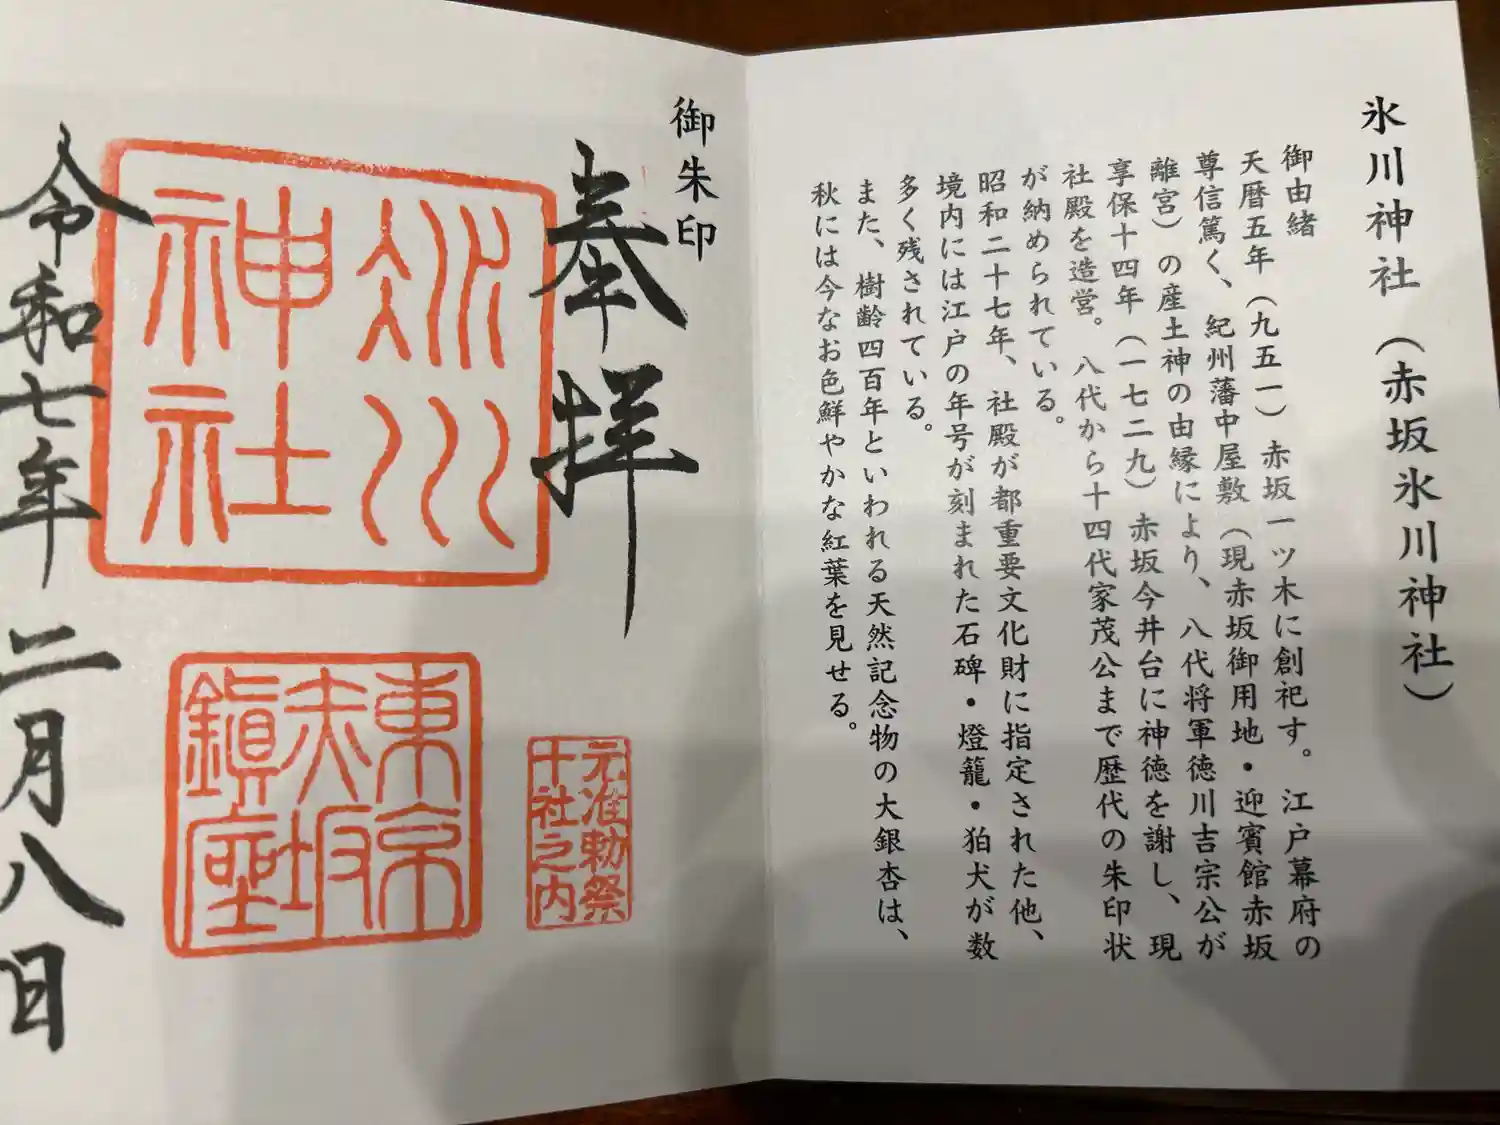 氷川神社（赤坂氷川神社）
御由緒
天暦五年（九五一）赤坂一ツ木に創祀す。江戸幕府の
尊信篤く、紀州藩中屋敷（現赤坂御用地・迎賓館赤坂
離宮）の産土神の由縁により、八代将軍徳川吉宗公が
享保十四年（一七二九）赤坂今井台に神徳を謝し、現
社殿を造営。八代から十四代家茂公まで歴代の朱印状
が納められている。
昭和二十七年、社殿が都重要文化財に指定された他、
境内には江戸の年号が刻まれた石碑・燈籠・狛犬が数
多く残されている。
また、樹齢四百年といわれる天然記念物の大銀杏は、
秋には今なお色鮮やかな紅葉を見せる。
御朱印
奉拝
元准勅祭
十社之内
氷川
神社
東京
赤坂
鎮座
令和七年二月八日